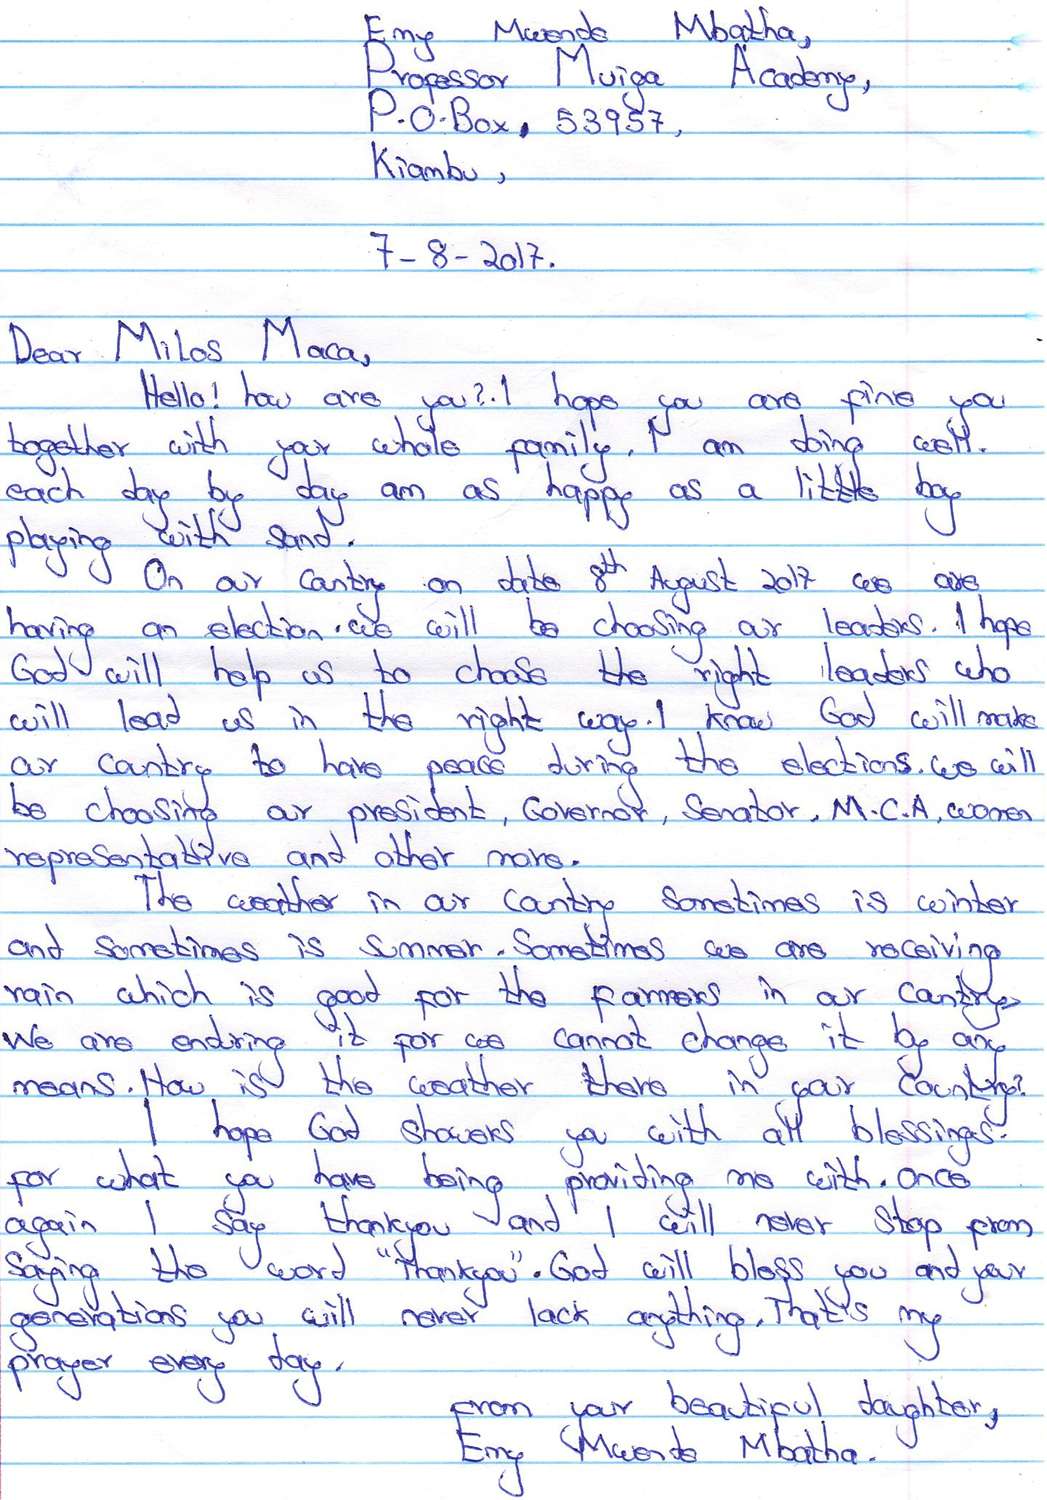 Emy Mwende Mbatha,
Professor Muiga Academy,
P.O.Box, 53957,
Kiambu,
7-8-2017.
Dear Milos Maca,
Hello! how are you?.I hope you are fine you
together with your whole family. I am doing well.
each day by day am as happy as a little boy
playing with sand.
On our Country on date 8th August 2017 we are
having an election.we will be choosing our leaders. I hope
God will help us to choose the right leaders who
will lead us in the right way.I know God will make
our Country to have peace during the elections.we will
be choosing our president, Governor, Senator, M.C.A, women
representative and other more.
The weather in our Country Sometimes is winter
and sometimes is summer. Sometimes we are receiving
rain which is good for the farmers in our Country.
We are enduring it for we cannot change it by any
means. How is the weather there in your Country?
I hope God showers you with all blessings.
for what you have being providing me with. once
again I say thankyou and I will never stop from
Saying the word "Thankyou". God will bless you and your
generations you will never lack anything. That's my
prayer every day.
from your beautiful daughter,
Emy Mwende Mbatha.